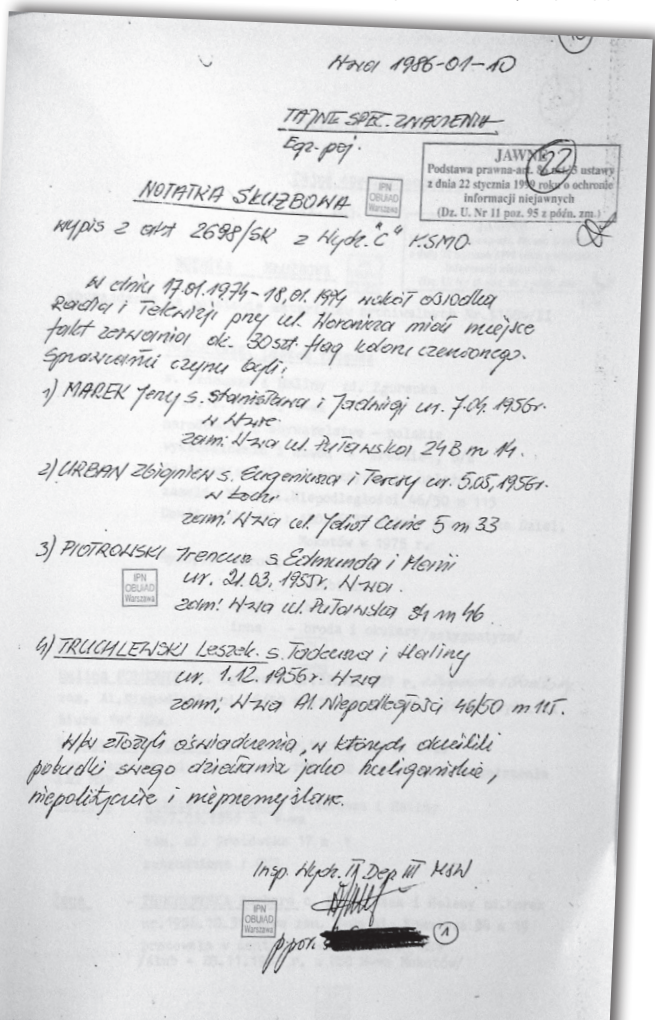 W-wa 1986-01-10
TAJNE SPEC. ZNACZENIA
Egz. poj.
22
JAWNE
Podstawa prawna-art. 86 ust. 3 ustawy
z dnia 22 stycznia 1999 roku o ochronie
informacji niejawnych
(Dz. U. Nr 11 poz. 95 z późn. zm.)
NOTATKA SŁUŻBOWA
IPN
OBUiAD
Warszawa
wypis z akt 2698/SK z Wydz. "C" KSMO.
W dniu 17.01.1974 - 18.01.1974 wokół ośrodka
Radia i Telewizji przy ul. Woronicza miał miejsce
fakt zerwania ok. 30 szt. flag koloru czerwonego.
Sprawcami czynu byli;
1) MAREK Jerzy s. Stanisława i Jadwigi ur. 7.04.1956r.
w W-wie.
zam. W-wa ul. Puławska 24B m 14.
2) URBAN Zbigniew s. Eugeniusza i Teresy ur. 5.05.1956r.
w Łodzi
zam. W-wa ul. Joliot Curie 5 m 33
3) PIOTROWSKI Ireneusz s. Edmunda i Marii
ur. 21.03.1955r. W-wa.
IPN
OBUiAD
Warszawa
zam: W-wa ul. Puławska m 46
4) TRUCHLEWSKI Leszek. s. Tadeusza i Haliny
ur. 1.12.1956r. W-wa
zam; W-wa Al. Niepodległości 46/50 m
W/w złożyli oświadczenia, w których określili
pobudki swego działania jako chuligańskie,
niepolityczne i nieprzemyślane.
Insp. Wydz. IX Dep. III MSW
IPN
OBUiAD
Warszawa
ppor.
1